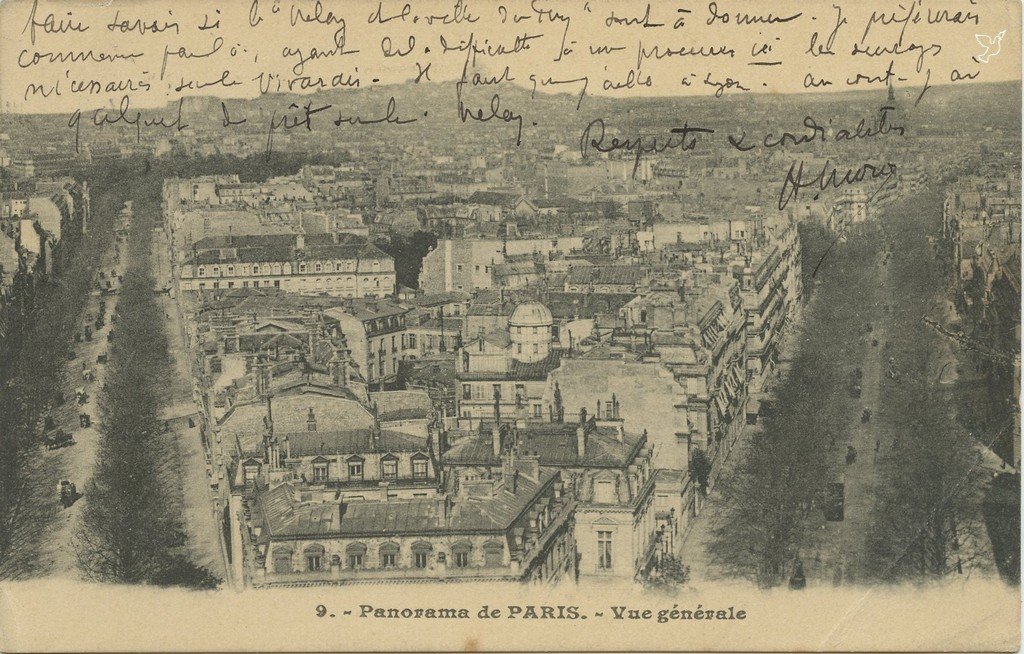 faire savoir si le "Velay et la ville du Puy" sont à donner. Je préférerais
commencer par là, ayant des difficultés à me procurer ici les ouvrages
nécessaires seule Vivarais - Il faut que j'aille à Lyon. au cont- j'ai
quelque de prêt sur le Velay.
Respects & cordialités
H.
9. - Panorama de PARIS. - Vue générale